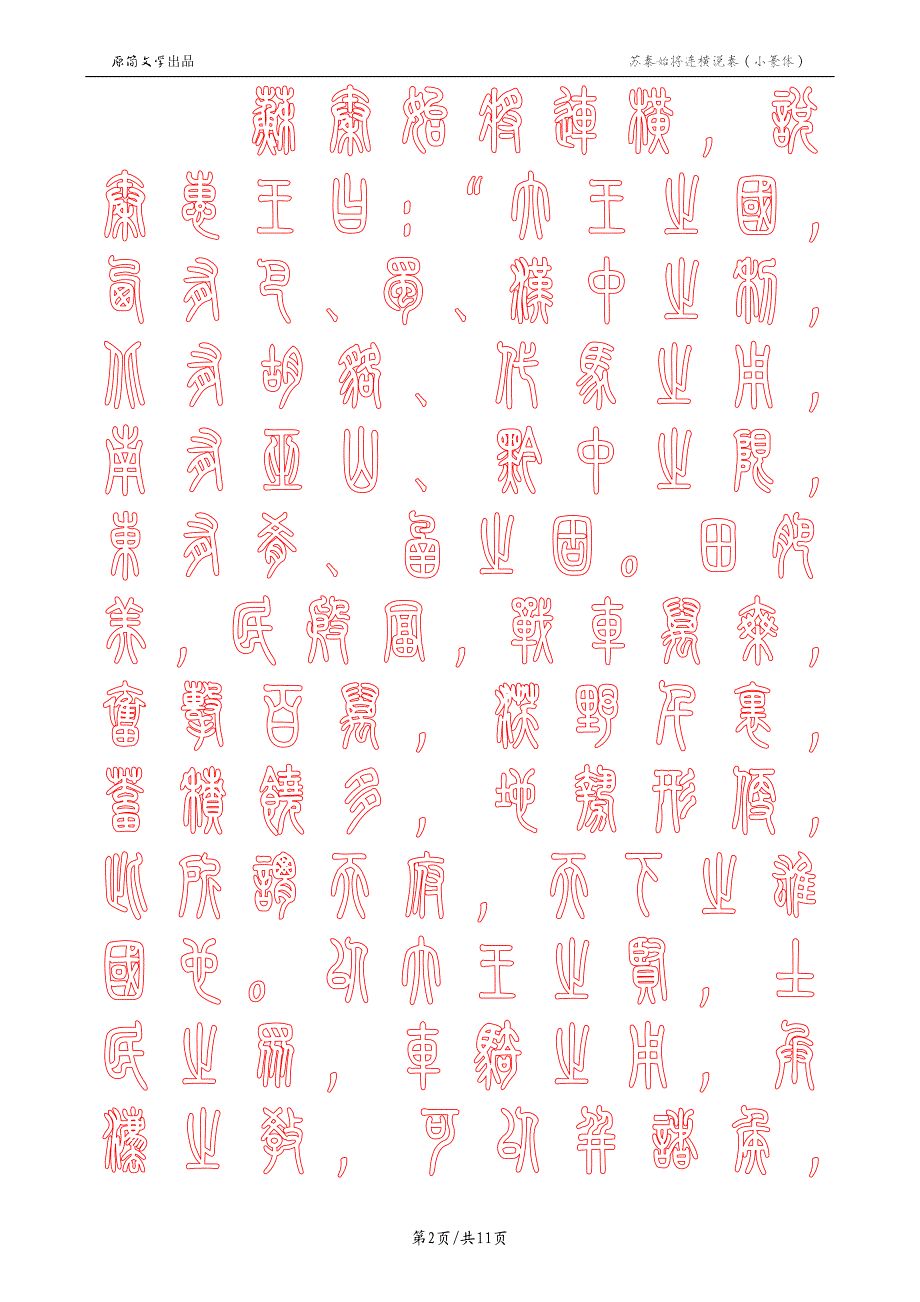 原简文学出品 苏秦始将连横说秦(小篆体)
蘇秦始將連橫,說
秦惠王曰:“大王之國,
西有巴、蜀、漢中之利,
北有胡貉、代馬之用,
南有巫山、黔中之限,
東有肴、函之固。田肥
美,民殷富,戰車萬乘,
奮擊百萬,沃野千裏,
蓄積饒多,地勢形便,
此所謂天府,天下之雄
國也。以大王之賢,士
民之眾,車騎之用,兵
法之教,可以并諸侯,
第2页/共11页